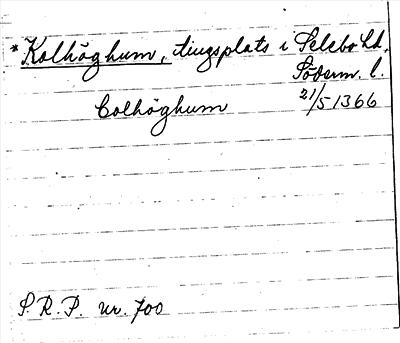 *Kolhöghum, tingsplats i Selebo hd,
Söderm. l.
Colhöghum 21/5 1366
S.R.P. nr. 700